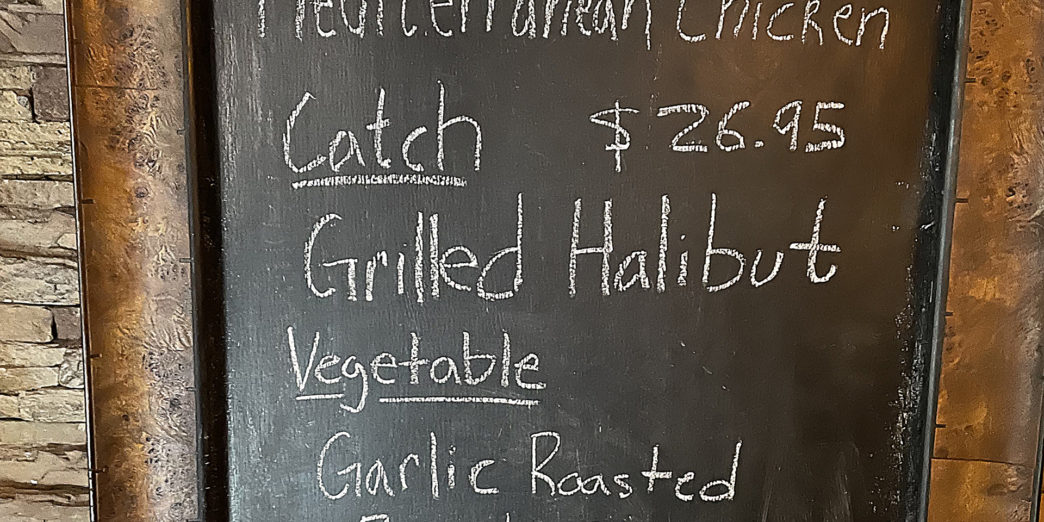 Mediterranean Chicken
Catch $26.95
Grilled Halibut
Vegetable
Garlic Roasted